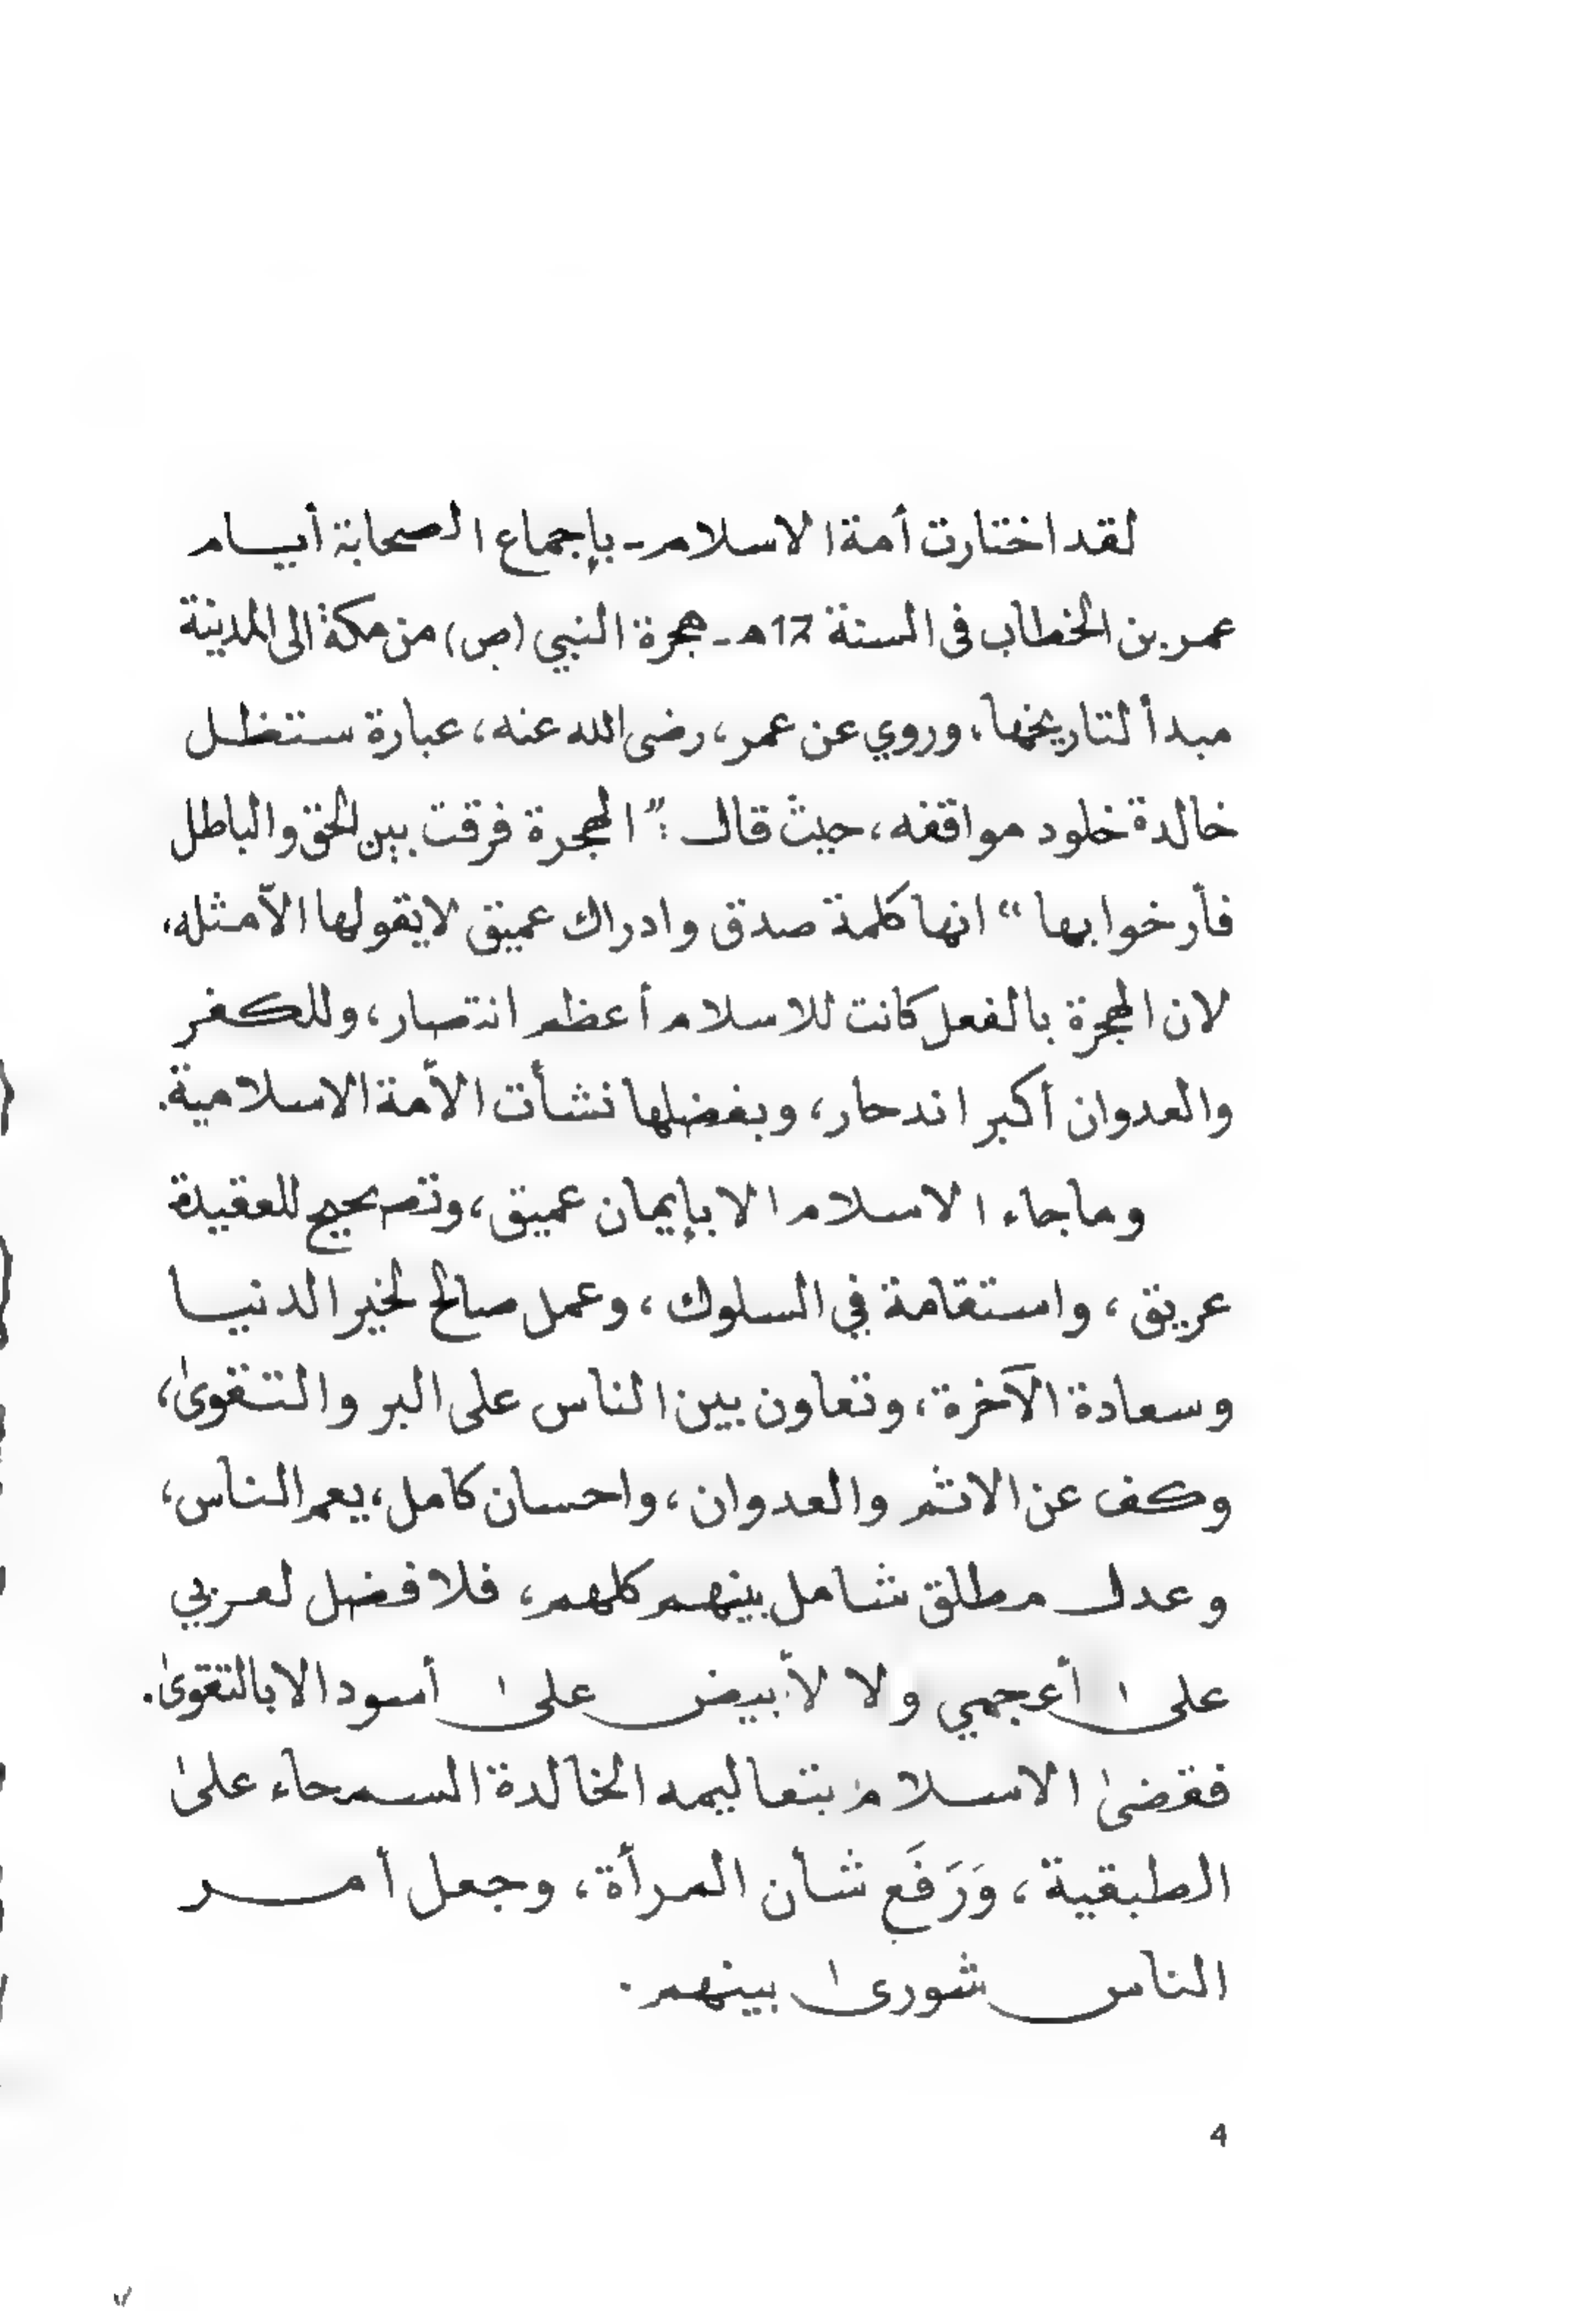 لقد اختارت أمة الاسلام - بإجماع الصحابة أيام
عمر بن الخطاب فى السنة 17هـ - هجرة النبي (ص) من مكة الى المدينة
مبدأ لتاريخها. وروي عن عمر، رضى الله عنه، عبارة ستظل
خالدة خلود مواقفه، حيث قال : "الهجرة فرقت بين الحق والباطل
فأرخوا بها" انها كلمة صدق وادراك عميق لا يقولها الاّ مثله،
لان الهجرة بالفعل كانت للاسلام أعظم انتصار، وللكفر
والعدوان أكبر اندحار، وبفضلها نشأت الأمة الاسلامية.
وما جاء الاسلام الا بإيمان عميق، وتصحيح للعقيدة
عريق، واستقامة في السلوك، وعمل صالح لخير الدنيا
وسعادة الآخرة، وتعاون بين الناس على البر والتقوىٰ،
وكف عن الاثم والعدوان، واحسان كامل، يعم الناس،
وعدل مطلق شامل بينهم كلهم، فلا فضل لعربي
علىٰ أعجمي ولا لأبيض علىٰ أسود الا بالتقوىٰ.
فقضىٰ الاسلام بتعاليمه الخالدة السمحاء علىٰ
الطبقية، وَرَفَع شأن المرأة، وجعل أمر
الناس شورىٰ بينهم.
4